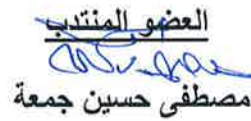 العضو المنتدب
مصطفى حسين جمعة